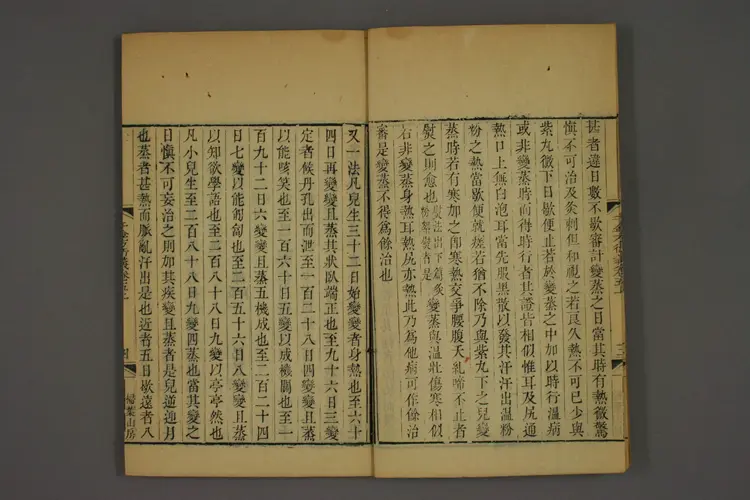 甚者違日數不歇審計變蒸之日當其時有熱微驚
慎不可治及灸刺但和視之若良久熱不可已少與
紫丸微下日歇便止若於變蒸之中加以時行溫病
或非變蒸時而得時行者其證皆相似惟耳及尻通
熱口上無白泡耳當先服黑散以發其汗汗出溫粉
粉之熱當歇便就瘥若猶不除乃與紫丸下之兒變
蒸時若有寒加之即寒熱交爭腰腹夭糺啼不止者
熨之則愈也
變蒸與溫壯傷寒相似
若非變蒸身熱耳熱尻亦熱此乃為他病可作餘治
審是變蒸不得為餘治也
又一法凡兒生三十二日始變變者身熱也至六十
四日再變變且蒸其狀臥端正也至九十六日三變
定者候丹孔出而泄至一百二十八日四變變且蒸
以能咳笑也至一百六十日五變以成機關也至一
百九十二日六變變且蒸五機成也至二百二十四
日七變以能匍匐也至二百五十六日八變變且蒸
以知欲學語也至二百八十八日九變以亭亭然也
凡小兒生至二百八十八日九變四蒸也當其變之
日慎不可妄治之則加其疾變且蒸者是兒送迚月
也蒸者甚熱而脈亂汗出是也近者五日歇遠者八
四
掃葉山房